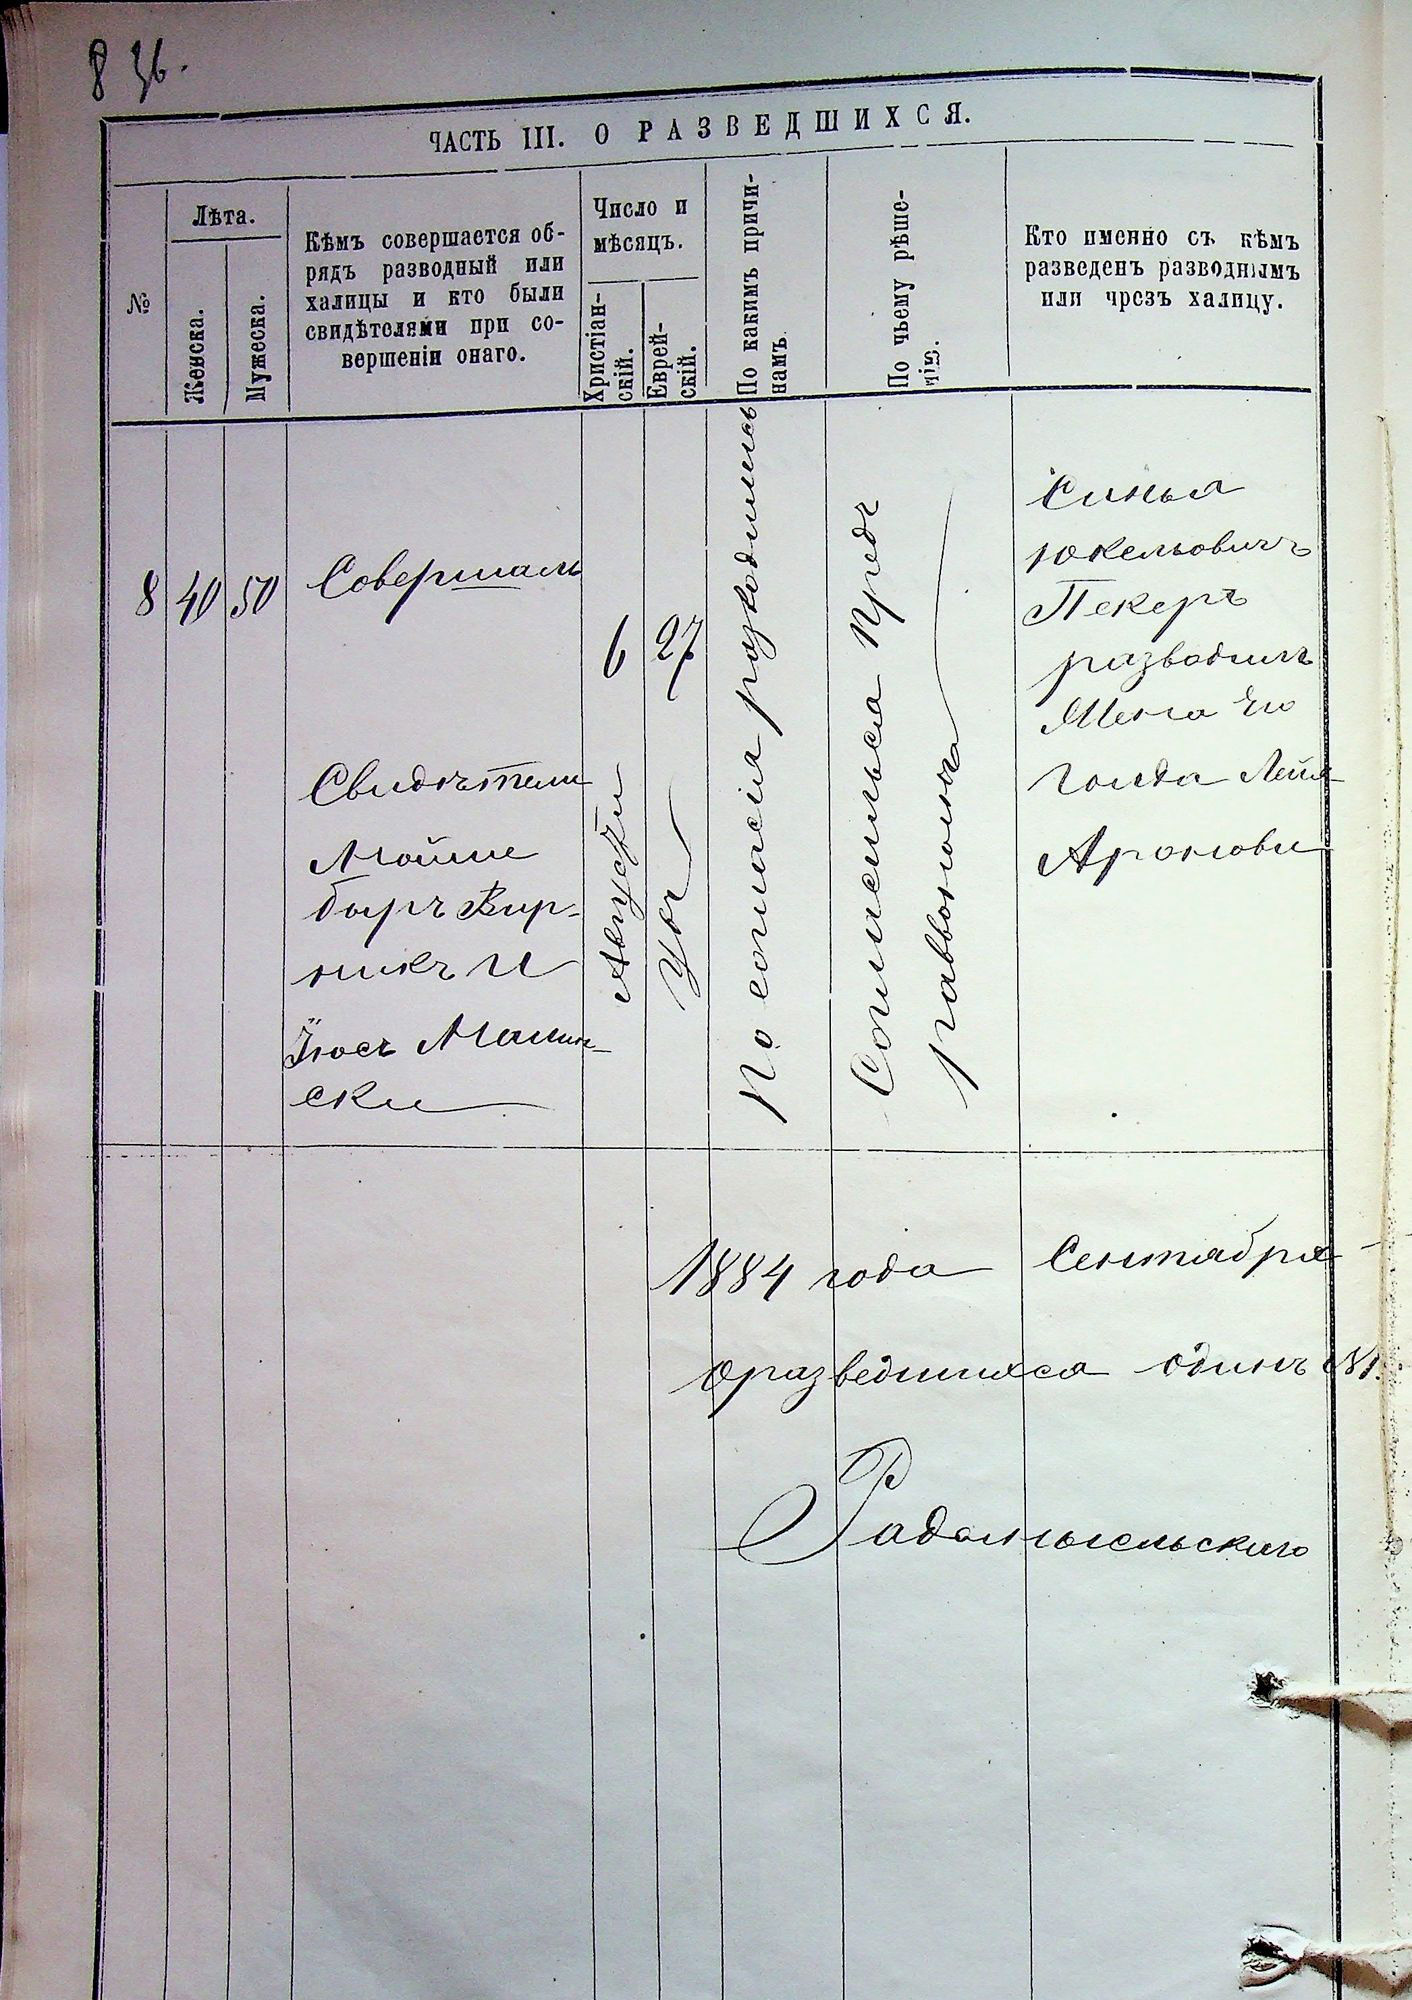 836.
ЧАСТЬ III. О РАЗВЕДШИХСЯ.
№
Лѣта.
Женска.
Мужеска.
Кѣмъ совершается об-
рядъ разводный или
халицы и кто были
свидѣтелями при со-
вершеніи онаго.
Число и
мѣсяцъ.
Христіан-
скій.
Еврей-
скій.
По какимъ причи-
намъ
По чьему рѣше-
нію.
Кто именно съ кѣмъ
разведенъ разводнымъ
или чрезъ халицу.
8
40
50
Совершалъ
Свидѣтели
Мойше
беръ Вир-
никъ и
Іюсъ Малин-
ски
6
Августи
27
По согласія разводились
Согласилься Предъ
раввономъ
Синья
Юкельовичъ
Пекеръ
разводилъ
Жена Его
Голда Лейя
Ароновы
1884 года Сентября
о разведшихся одинъ №1.
Радомысльскаго